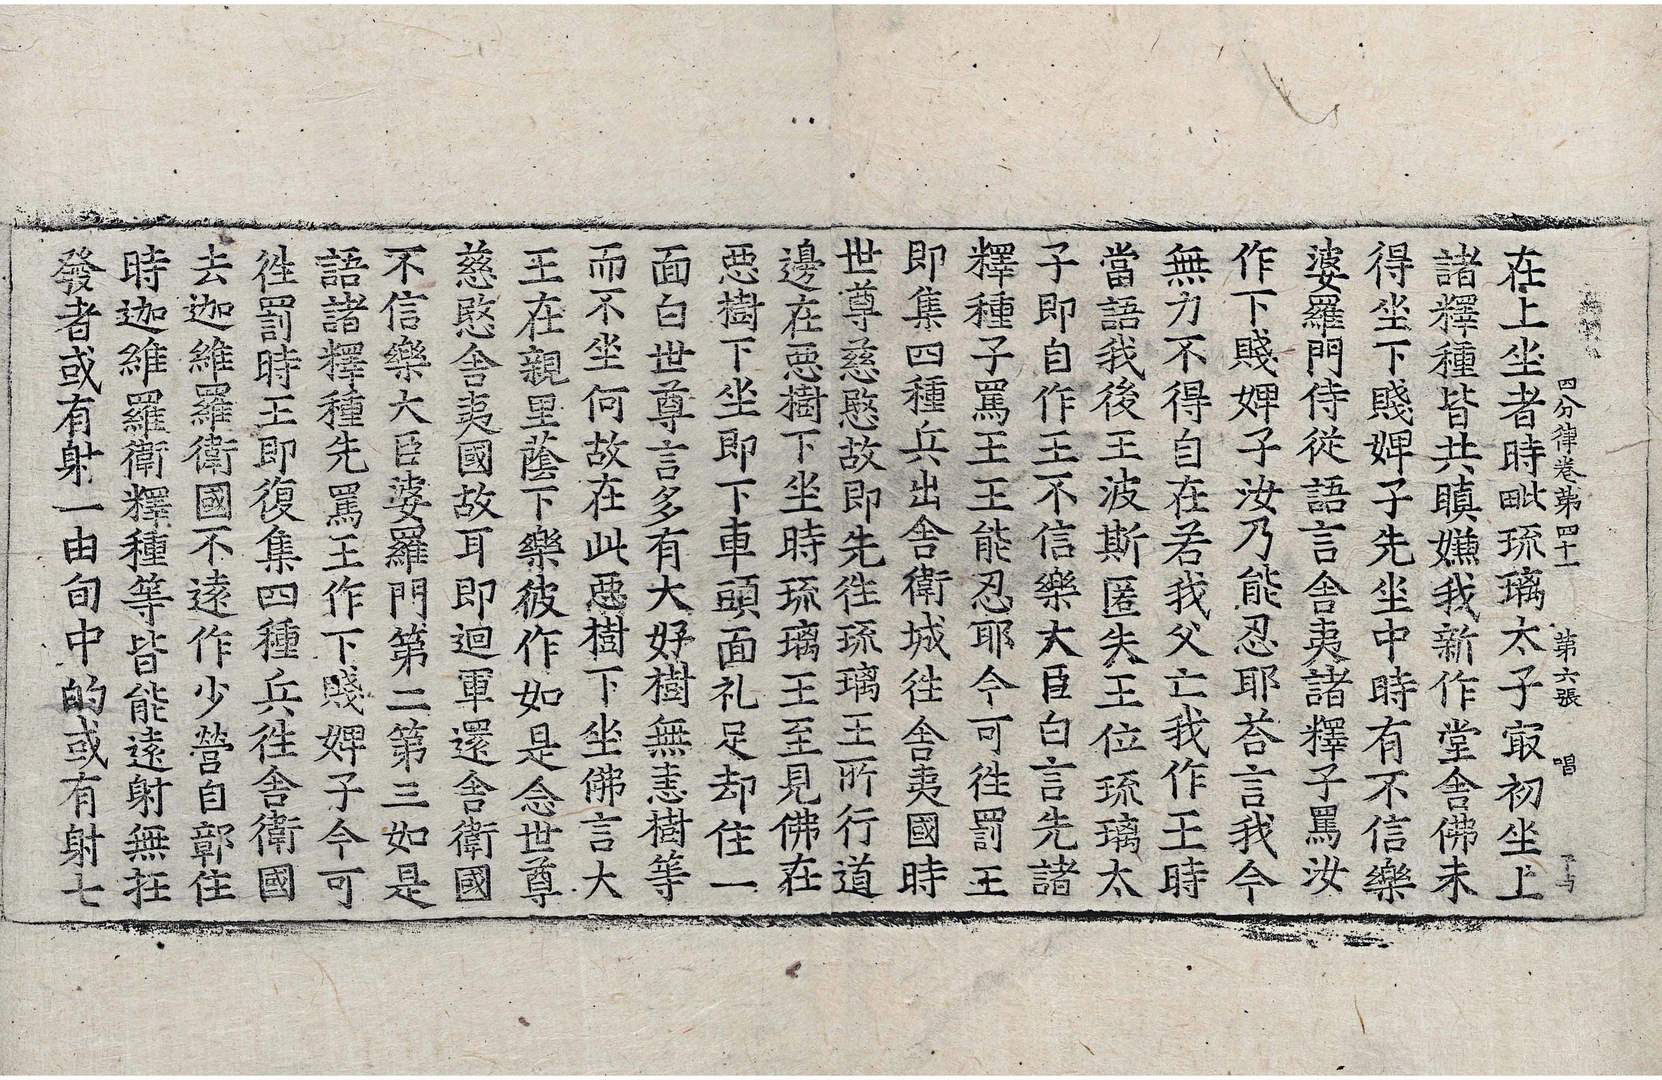 四分律卷第四十一 第六張 唱
在上坐者時毗琉璃太子㝡初坐上
諸釋種皆共瞋嫌我新作堂舍佛未
得坐下賤婢子先坐中時有不信樂
婆羅門侍從語言舍夷諸釋子罵汝
作下賤婢子汝乃能忍耶荅言我今
無力不得自在若我父亡我作王時
當語我後王波斯匿失王位琉璃太
子即自作王不信樂大臣白言先諸
釋種子罵王王能忍耶今可徃罰王
即集四種兵出舍衛城徃舍夷國時
世尊慈愍故即先徃琉璃王所行道
邊在惡樹下坐時琉璃王至見佛在
惡樹下坐即下車頭面礼足却住一
面白世尊言多有大好樹無恚樹等
而不坐何故在此惡樹下坐佛言大
王在親里蔭下樂彼作如是念世尊
慈愍舍夷國故耳即迴軍還舍衛國
不信樂大臣婆羅門第二第三如是
語諸釋種先罵王作下賤婢子今可
徃罰時王即復集四種兵徃舍衛國
去迦維羅衛國不遠作少營自鄣住
時迦維羅衛釋種等皆能遠射無抂
發者或有射一由旬中的或有射七